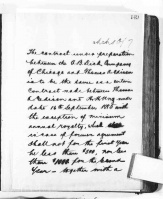 The contract under preparation
between the A.B. Dick Company
of Chicago and Thomas A Edison
is to be the same as a certain
Contract made between Thomas
A Edison and
date 10 September 1885 with
the exception of minimum
annual royalty, which
in case of former agreement
shall not for the first year
be less than $500, nor less
than $1000 for the second
Year — together with a